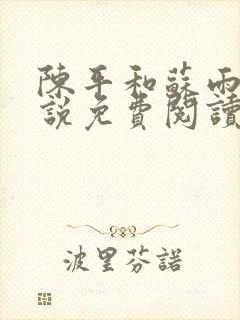 陳平和蘇雨
說免費閱讀
波里芬諾